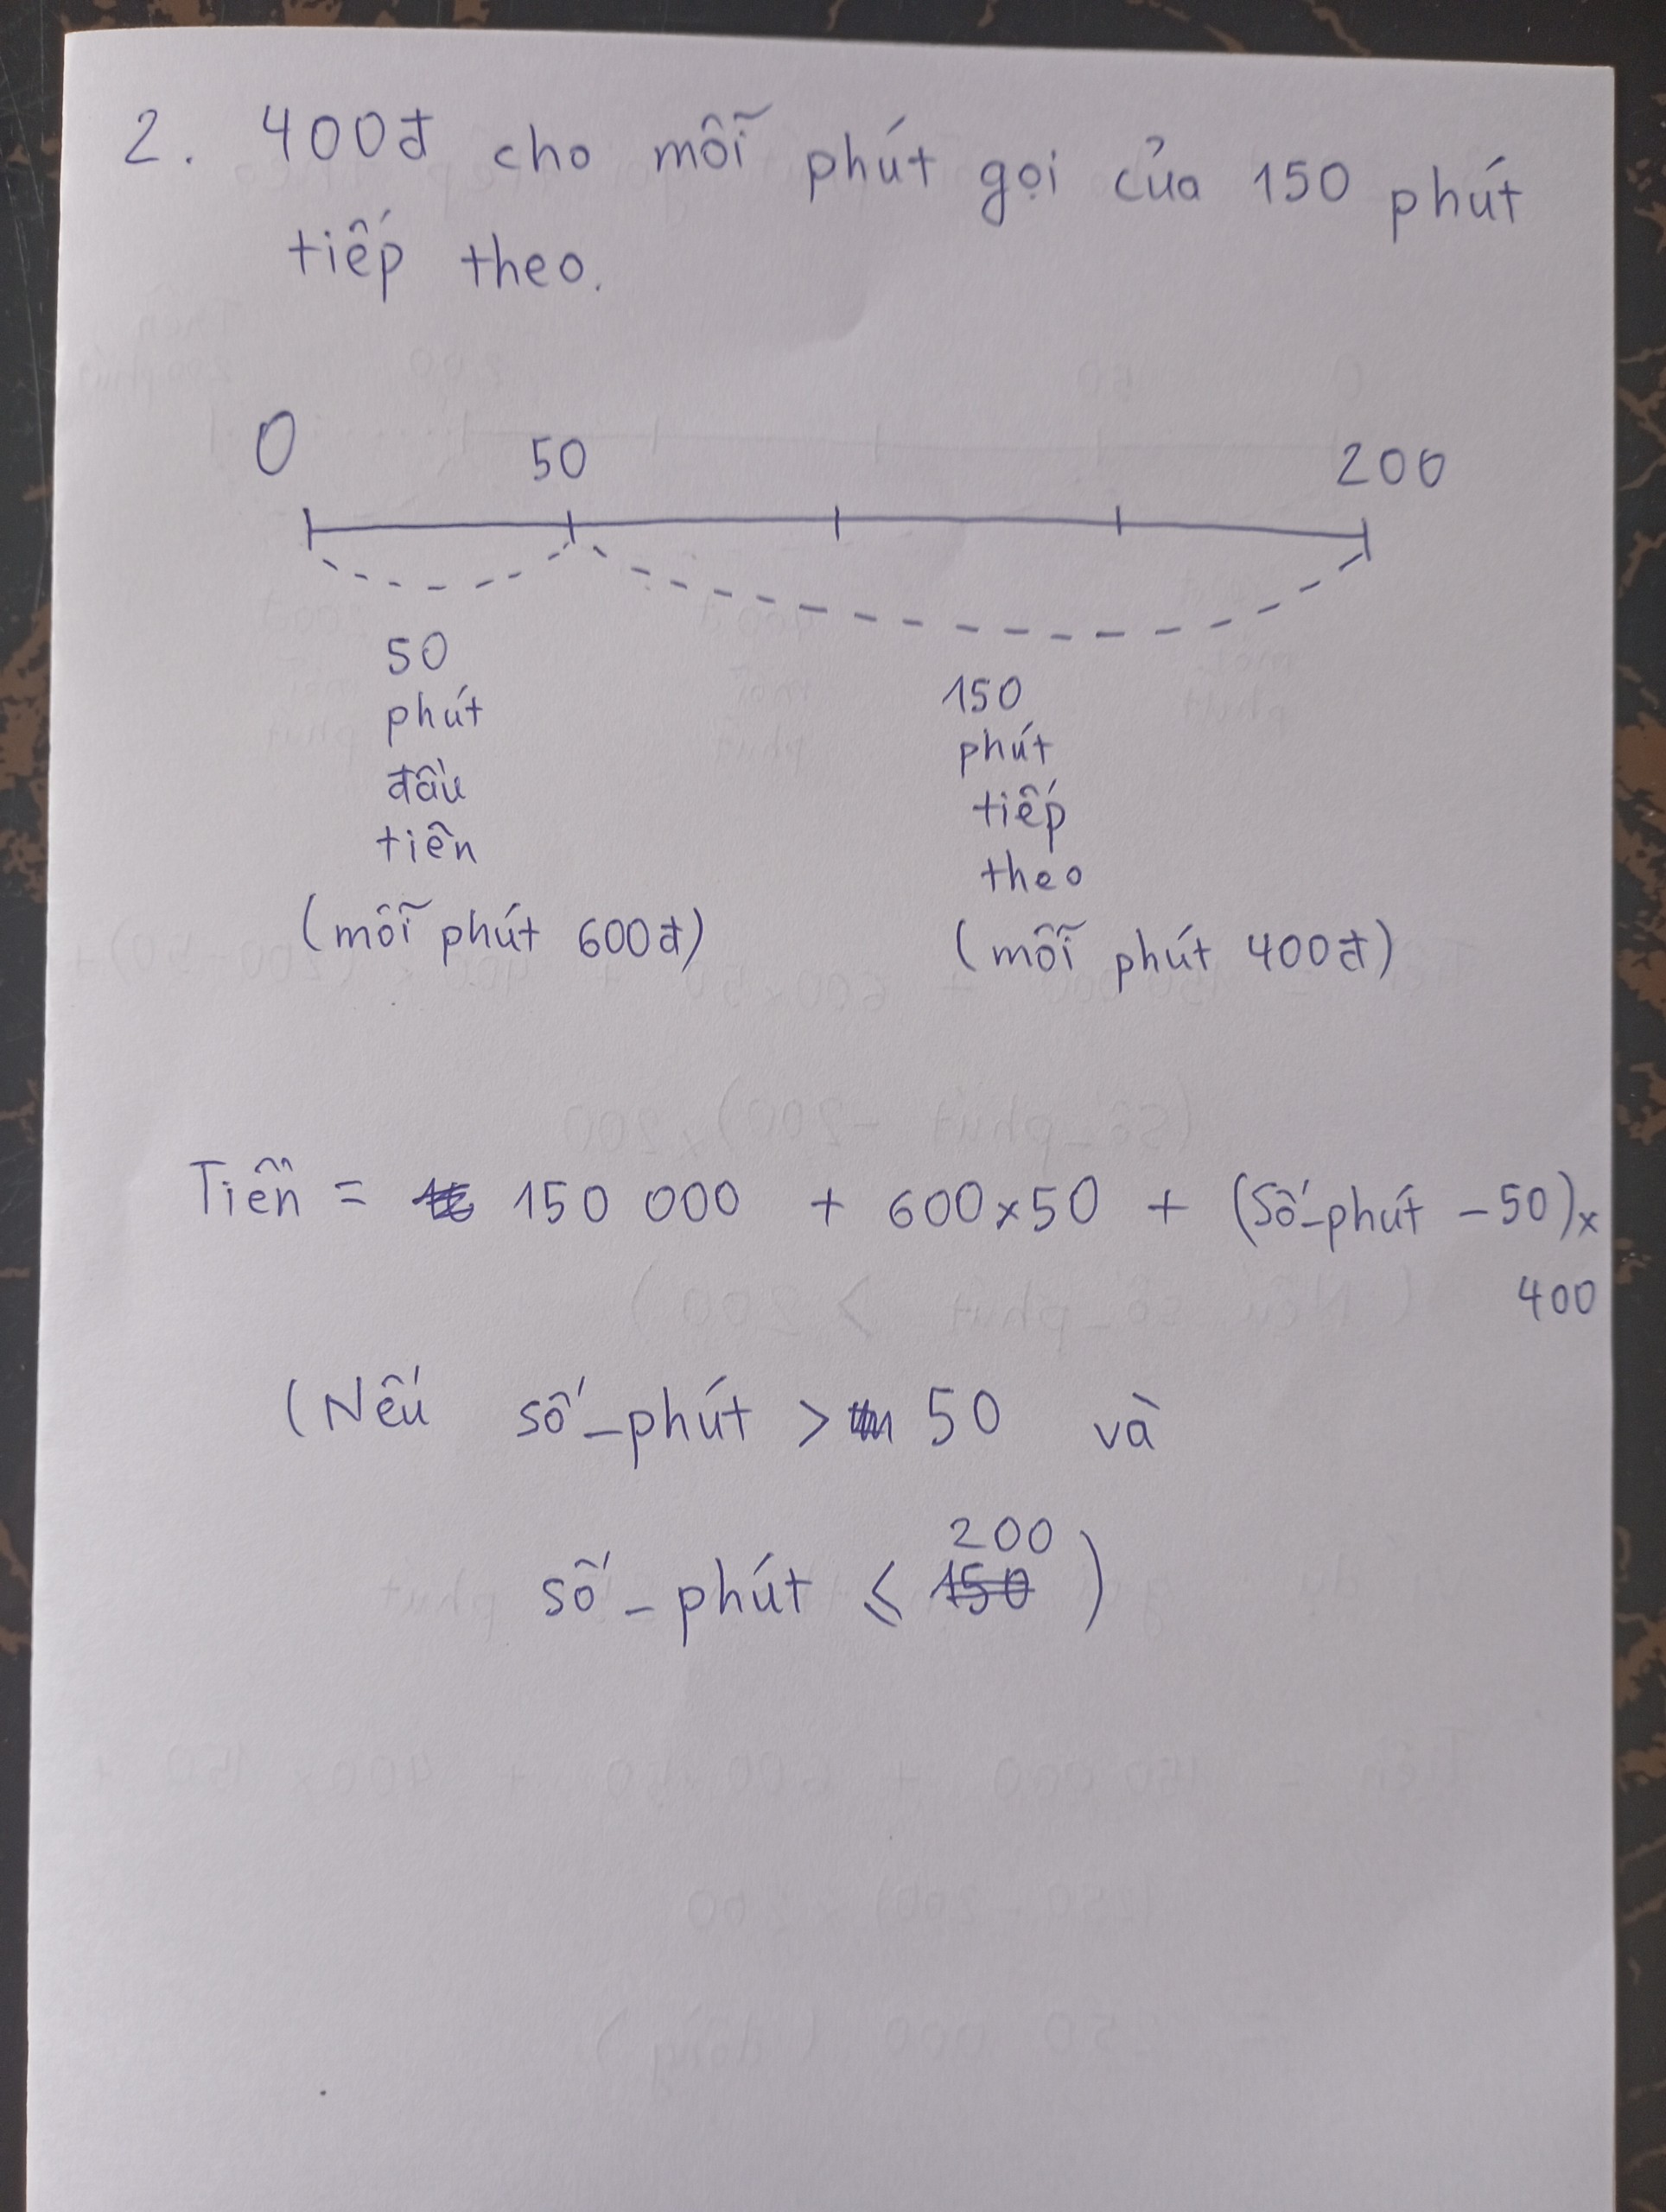 2. 400đ cho mỗi phút gọi của 150 phút
tiếp theo.
0 50 200
50
phút
đầu
tiên
(mỗi phút 600đ)
150
phút
tiếp
theo
(mỗi phút 400đ)
Tiền = 150 000 + 600x50 + (Số_phút - 50)x
400
(Nếu số_phút > 50 và
200
số_phút ≤ 150 )